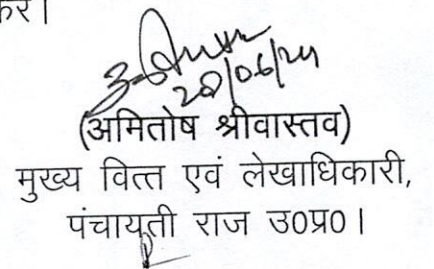 करें।
28/06/24
(अमितोष श्रीवास्तव)
मुख्य वित्त एवं लेखाधिकारी,
पंचायती राज उ०प्र०।